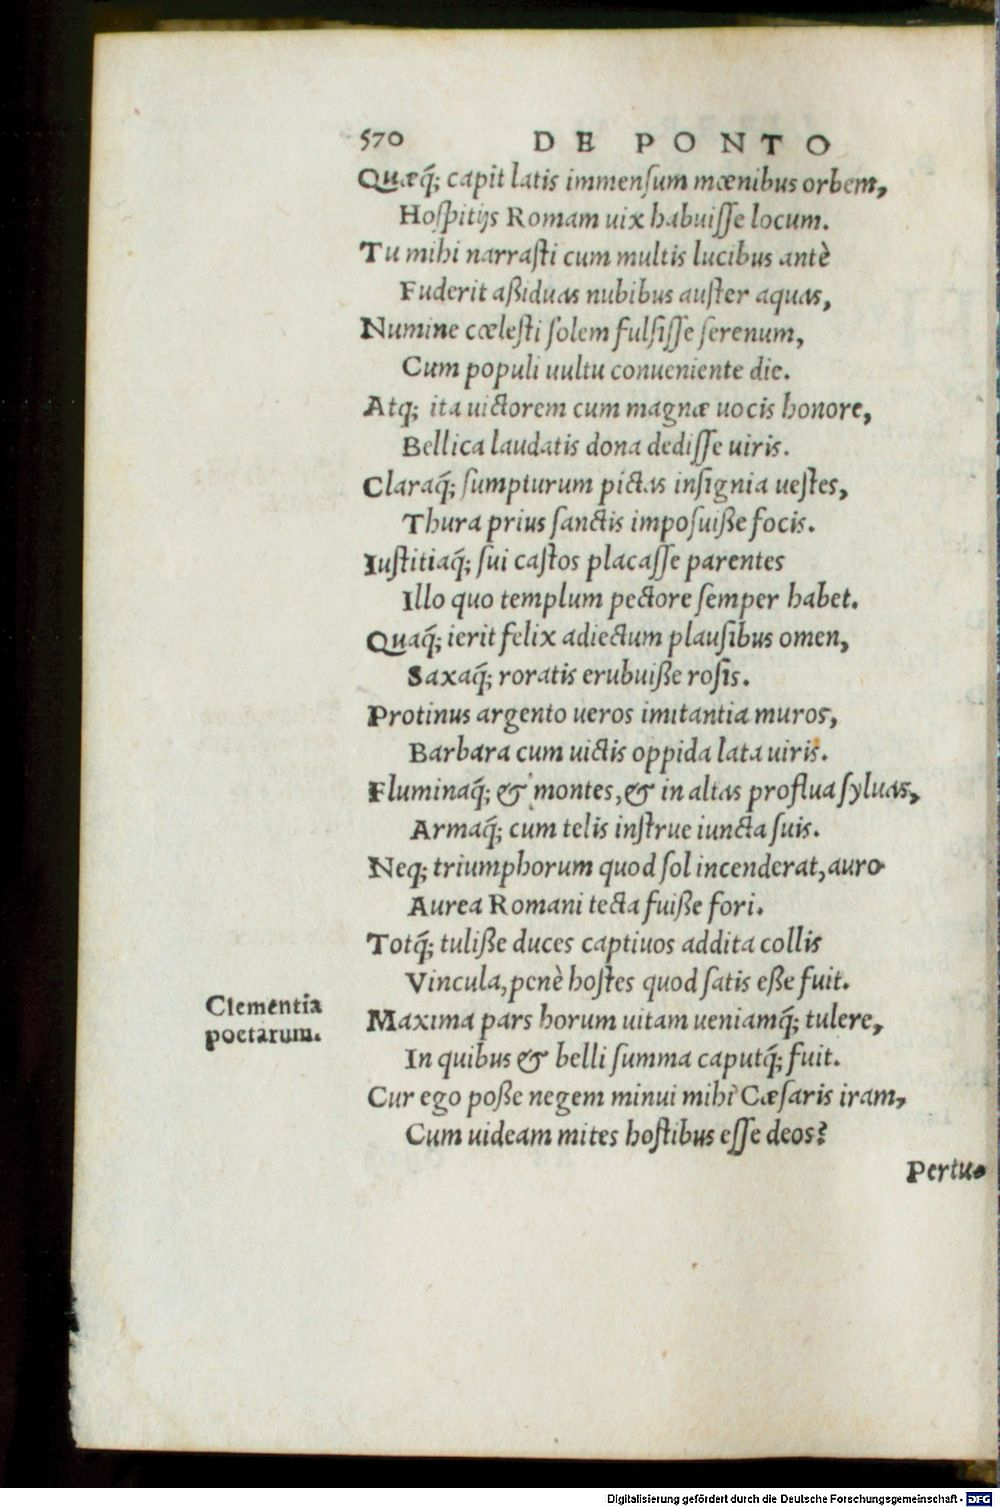 570 DE PONTO
Quæq́; capit latis immenſum mœnibus orbem,
Hoſpitijs Romam uix habuiſſe locum.
Tu mihi narraſti cum multis lucibus antè
Fuderit aßiduas nubibus auſter aquas,
Numine cœleſti ſolem fulſiſſe ſerenum,
Cum populi uultu conueniente die.
Atq; ita uictorem cum magnæ uocis honore,
Bellica laudatis dona dediſſe uiris.
Claraq́; ſumpturum pictas inſignia ueſtes,
Thura prius ſanctis impoſuiße focis.
Iuſtitiaq́; ſui caſtos placaſſe parentes
Illo quo templum pectore ſemper habet.
Quaq́; ierit felix adiectum plauſibus omen,
Saxaq́; roratis erubuiße roſis.
Protinus argento ueros imitantia muros,
Barbara cum uictis oppida lata uiris.
Fluminaq́; & montes, & in altas proflua ſyluas,
Armaq́; cum telis inſtrue iuncta ſuis.
Neq; triumphorum quod ſol incenderat, auro
Aurea Romani tecta fuiße fori.
Totq́; tuliße duces captiuos addita collis
Vincula, penè hoſtes quod ſatis eße fuit.
Clementia
poetarum.
Maxima pars horum uitam ueniamq́; tulere,
In quibus & belli ſumma caputq́; fuit.
Cur ego poße negem minui mihi Cæſaris iram,
Cum uideam mites hoſtibus eſſe deos?
Pertu-
Digitalisierung gefördert durch die Deutsche Forschungsgemeinschaft - DFG